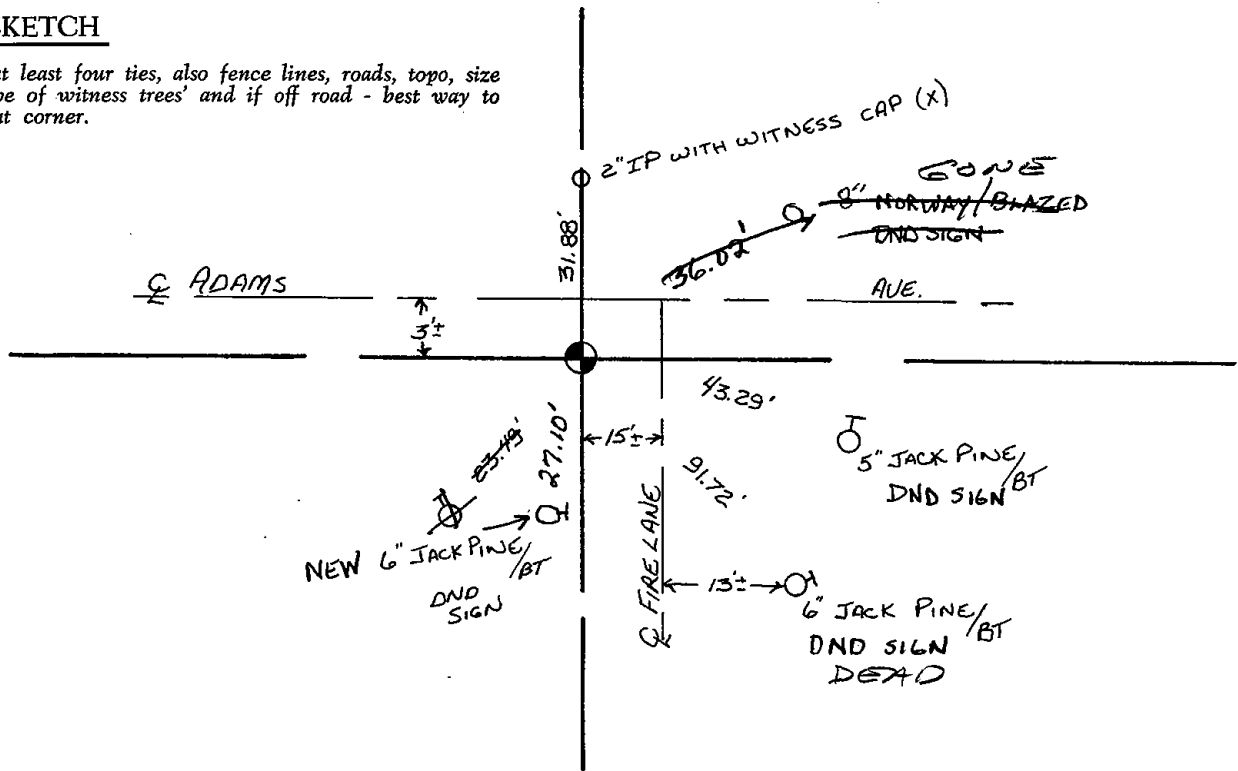 KETCH
t least four ties, also fence lines, roads, topo, size
pe of witness trees' and if off road - best way to
at corner.
2" IP WITH WITNESS CAP (X)
GONE
8" NORWAY/BLAZED
DND SIGN
36.02'
31.88'
℄ ADAMS AVE.
3'±
43.29'
15'±
23.49'
27.10'
91.72'
5" JACK PINE/BT
DND SIGN
NEW 6" JACK PINE/BT
DND
SIGN
℄ FIRE LANE
13'±
6" JACK PINE/BT
DND SIGN
DEAD